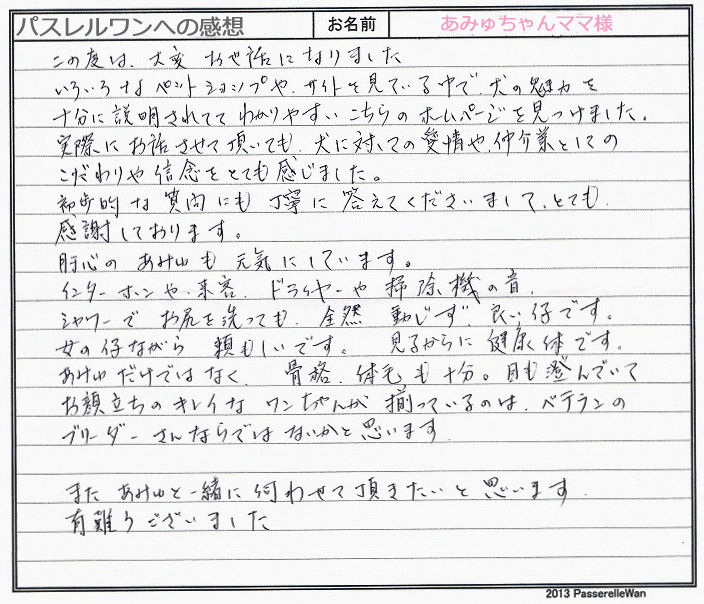 パスレルワンへの感想 お名前 あみゅちゃんママ様
この度は、大変 お世話になりました
いろいろなペットショップや、サイトを見ている中で、犬の魅力を
十分に説明されてて わかりやすい こちらの ホームページを見つけました。
実際に お話させて頂いても、犬に対しての愛情や、仲介業としての
こだわりや 信念をとても感じました。
初歩的な質問にも 丁寧に 答えてくださいまして、とても
感謝しております。
肝心の あみゅも 元気にしています。
インターホンや、来客、ドライヤーや 掃除機の音、
シャワーで お尻を洗っても、全然 動じず 良い仔です。
女の仔ながら 頼もしいです。 見るからに 健康体です。
あみゅだけではなく、骨格、体毛も十分。目も澄んでいて
お顔立ちの キレイな ワンちゃんが 揃っているのは、ベテランの
ブリーダーさんならでは ないかと思います
また あみゅと一緒に 伺わせて頂きたいと 思います
有難うございました
2013 PasserelleWan